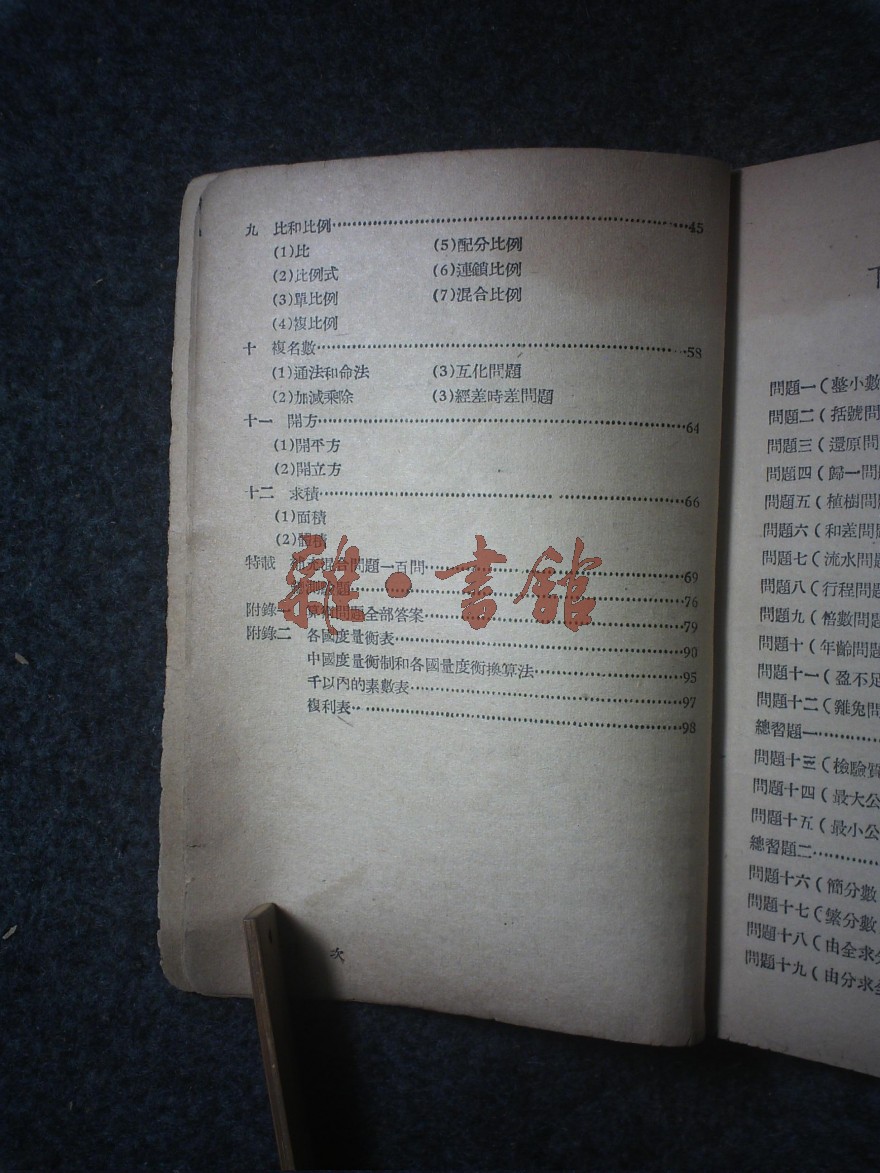 九 比和比例……45
(1)比 (5)配分比例
(2)比例式 (6)連鎖比例
(3)單比例 (7)混合比例
(4)複比例
十 複名數……58
(1)通法和命法 (3)互化問題
(2)加減乘除 (3)經差時差問題
十一 開方……64
(1)開平方
(2)開立方
十二 求積……66
(1)面積
(2)體積
特載 補充混合問題一百問……69
測驗題……76
附錄一 算術問題全部答案……79
附錄二 各國度量衡表……90
中國度量衡制和各國量度衡換算法……95
千以內的素數表……97
複利表……98
次
雜·書館
下
問題一(整小數
問題二(括號問
問題三(還原問
問題四(歸一問
問題五(植樹問
問題六(和差問
問題七(流水問題
問題八(行程問題
問題九(倍數問題
問題十(年齡問題
問題十一(盈不足
問題十二(雞兔問
總習題一……
問題十三(檢驗質
問題十四(最大公
問題十五(最小公
總習題二……
問題十六(簡分數
問題十七(繁分數
問題十八(由全求分
問題十九(由分求全